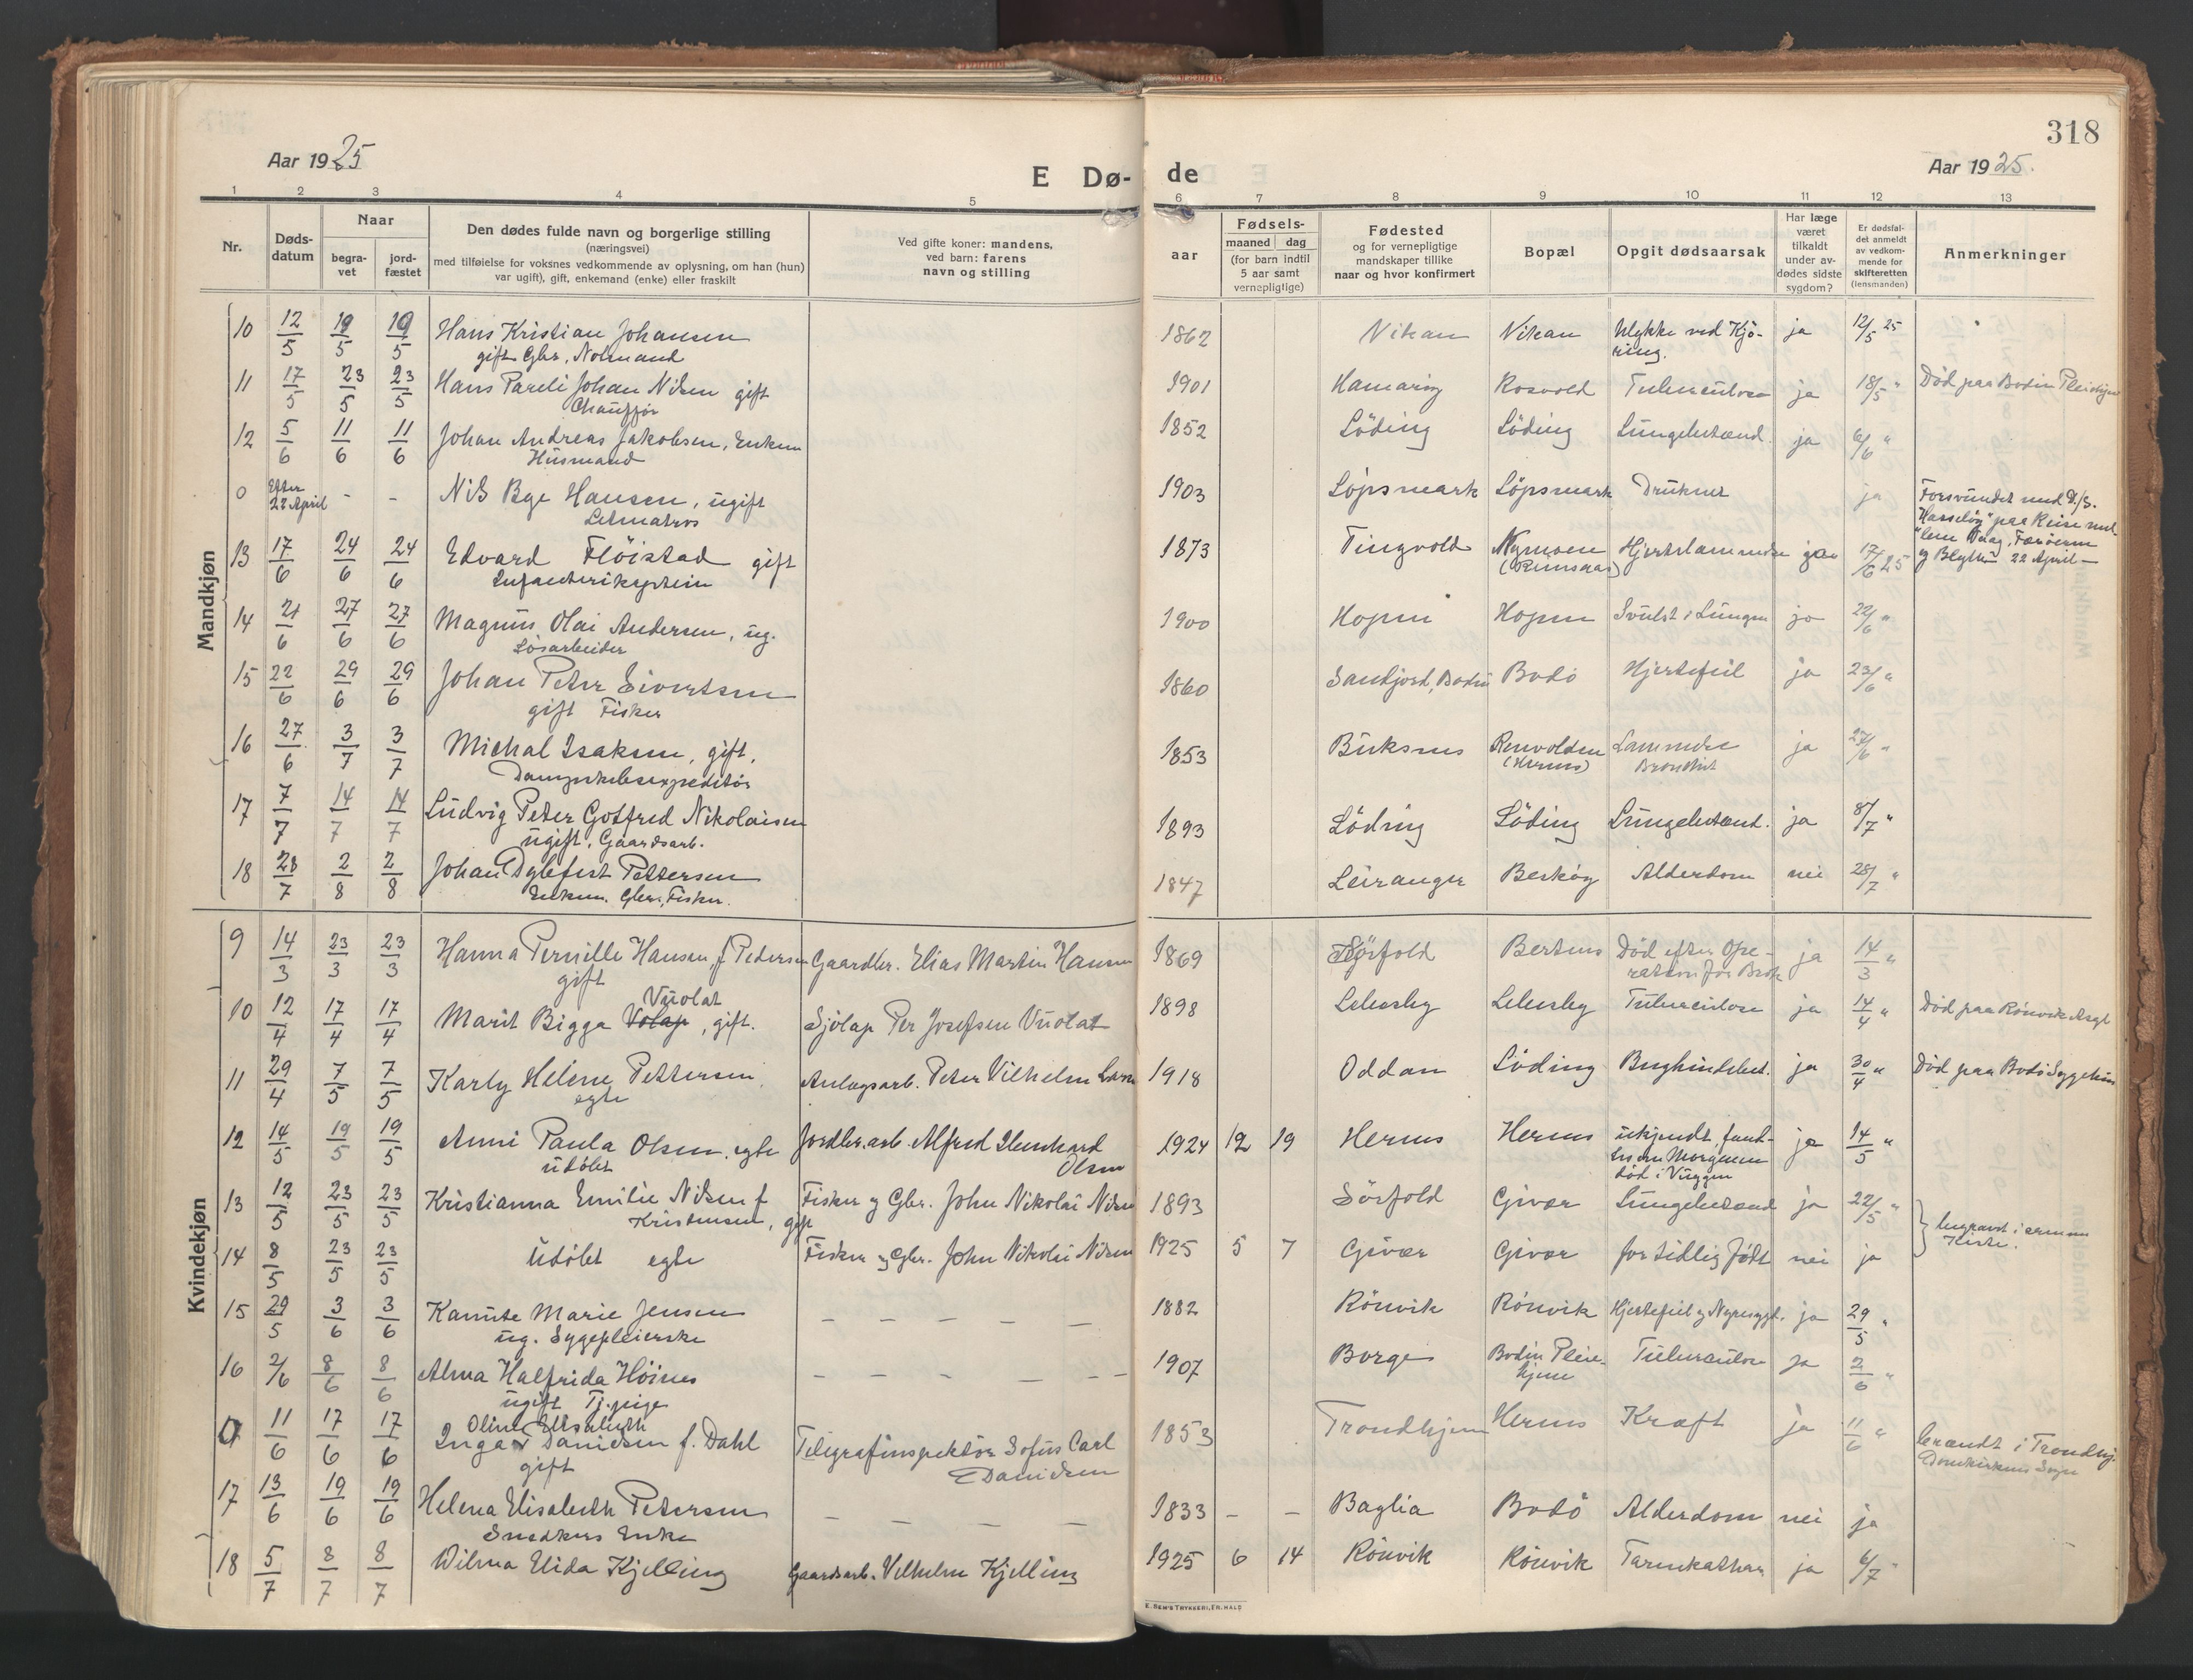 318
Aar 1925
E Dø-
de
Aar 1925.
1 2 3 4 5 6 7 8 9 10 11 12 13
Nr.
Døds-
datum
Naar
begra-
vet
jord-
fæstet
Den dødes fulde navn og borgerlige stilling
(næringsvei)
med tilføielse for voksnes vedkommende av oplysning, om han (hun)
var ugift), gift, enkemand (enke) eller fraskilt
Ved gifte koner: mandens,
ved barn: farens
navn og stilling
aar
Fødsels-
maaned dag
(for barn indtil
5 aar samt
vernepligtige)
Fødested
og for vernepligtige
mandskaper tillike
naar og hvor konfirmert
Bopæl
Opgit dødsaarsak
Har læge
været
tilkaldt
under av-
dødes sidste
sygdom?
Er dødsfal-
det anmeldt
av vedkom-
mende for
skifteretten
(lensmanden)
Anmerkninger
Mandkjøn
10 12/5 19/5 19/5 Hans Kristian Johansen 1862 Vikan Vikan Ulykke ved Kjö- ja 12/5 25
gift Gbr. ring.
11 17/5 23/5 23/5 Hans Pareli Johan Nilsen gift 1901 Hamaröy Rosvold Tuberculose ja 18/5 " Död paa Bodin Pleiehjem
Chauffør
12 5/6 11/6 11/6 Johan Andreas Jakobsen, Enkem 1852 Löding Löding Lungebetænd. ja 6/6 "
Husmand
0 Efter 22 April - - Nils Bye Hansen, ugift 1903 Löpsmark Löpsmark Druknet ja Forsvundet med D/S.
Letmatros "Hasselöy" paa Reise
13 17/6 24/6 24/6 Edvard Flöistad gift 1873 Tingvold Nymoen Hjertelammelse ja 17/6 25 og Blyth 22 April
Infanterikaptein
14 21/6 27/6 27/6 Magnus Olai Andersen, ug. 1900 Hopen Hopen Svulst i Lungen ja 22/6 "
Lösarbeider
15 22/6 29/6 29/6 Johan Peter Sivertsen 1860 Sandjord, Bodin Bodö Hjertefeil ja 23/6 "
gift Fisker
16 27/6 3/7 3/7 Michal Isaksen, gift. 1853 Buksnes Renvolden Lammelse ja 27/6 "
Dampskibsexpeditör (Hernes) Bronchit
17 7/7 14/7 14/7 Ludvig Peter Gotfred Nikolaisen 1893 Löding Löding Lungebetænd. ja 8/7 "
ugift, Gaardsarb.
18 28/7 2/8 2/8 Johan Dylefest Pettersen 1847 Leiranger Beskög Alderdom nei 28/7 "
Enkem. Gbr. Fisker.
Kvindekjøn
9 14/3 23/3 23/3 Hanna Pernille Hansen, f Pedersen Gaardbr. Elias Martin Hansen 1869 Sörfold Bertnes Död efter Ope- ja 14/3 "
gift ration for Brok
Vuolat
10 12/4 17/4 17/4 Marit Bigga Volap, gift. Sjölap Per Josefsen Vuolat 1898 Lebesby Lebesby Tuberculose ja 14/4 " Död paa Rönvik Asyl
11 29/4 7/5 7/5 Karly Helene Pettersen, Anlægsarb. Peter Vilhelm 1918 Oddan Löding Bughindebet. ja 30/4 " Död paa Bodö Sygehus
egte
12 14/5 19/5 19/5 Anni Paula Olsen, egte Jordbr.arb. Alfred Olsen 1924 12 19 Hernes Hernes ukjendt, fundt- ja 14/5 "
udöbt es om Morgenen
död i Vuggen
13 12/5 23/5 23/5 Kristianna Emilie Nilsen f Fisker og Gbr. John Nikolai Nilsen 1893 Sörfold Givær Lungebetænd ja 22/5 " begravet i samme
Kristensen, gift Kiste.
14 8/5 23/5 23/5 Udöbt egte Fisker og Gbr. John Nikolai Nilsen 1925 5 7 Givær Givær for tidlig födt nei ja
15 29/5 3/6 3/6 Kanute Marie Jensen — — — — — 1882 Rönvik Rönvik Hjertefeil og Nyresygd. ja 29/5 "
ug. Sygepleierske
16 2/6 8/6 8/6 Alma Halfrida Höines — — — — — 1907 Borge Bodin Pleie- Tuberculose ja 2/6 "
ugift Tj.pige hjem
Oline Elisabeth
0 11/6 17/6 17/6 Inga Danielsen f. Dahl Telegrafinspektör Sofus Carl 1853 Trondhjem Hernes Kræft ja 11/6 " brændt i Trondhj.
gift E Danielsen Domkirkens Sogn
17 13/6 19/6 19/6 Helena Elisabeth Petersen — — — — 1833 - - Baglia Bodö Alderdom nei ja
Snedkers Enke
18 5/7 8/7 8/7 Wilma Elida Kjelling Gaardsarb. Vilhelm Kjelling 1925 6 14 Rönvik Rönvik Tarmkathar ja 6/7 "
E. SEM'S TRYKKERI, FR. HALD